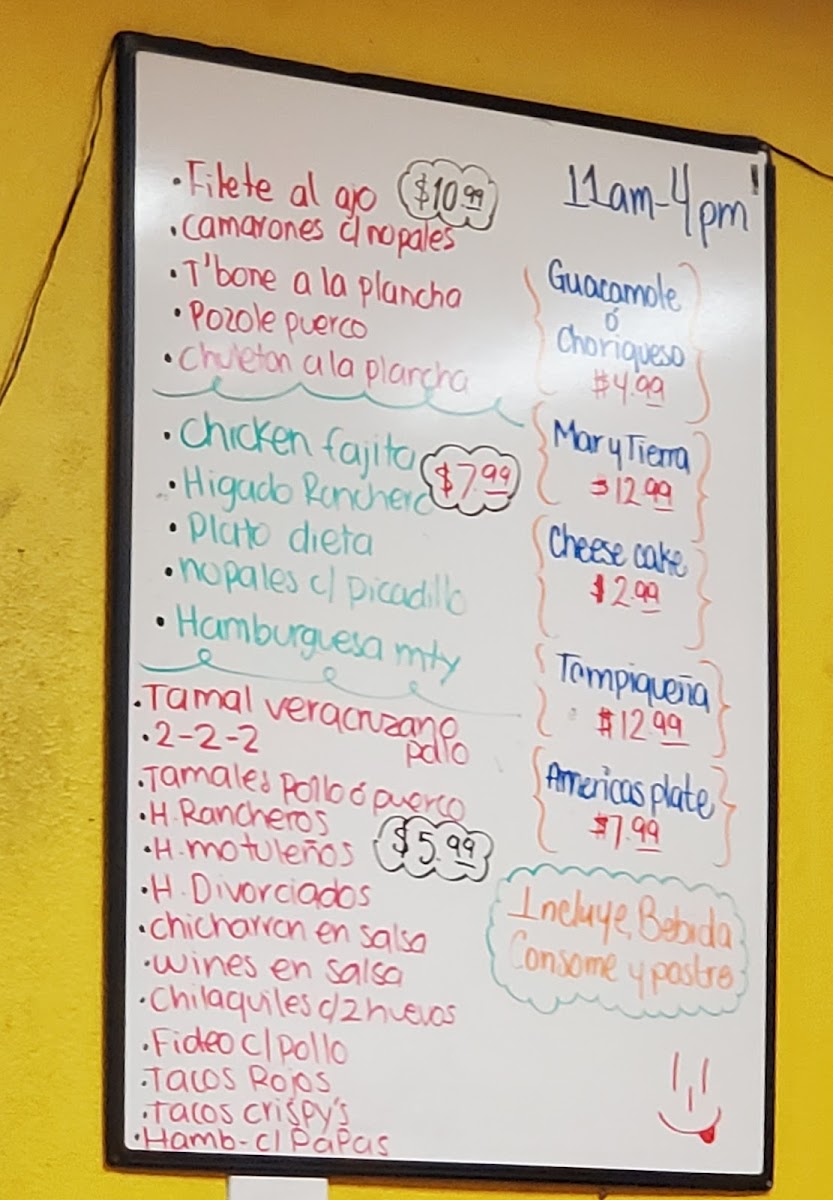 • Filete al ajo $10.99
• Camarones c/nopales
• T'bone a la plancha
• Pozole puerco
• Chuleton a la plancha
• Chicken fajita $7.99
• Higado Ranchero
• Plato dieta
• nopales c/ picadillo
• Hamburguesa mty
• Tamal veracruzano
pollo
• 2-2-2
• Tamales pollo ó puerco
• H. Rancheros
• H. motuleños $5.99
• H. Divorciados
• chicharron en salsa
• wines en salsa
• Chilaquiles c/2 huevos
• Fideo c/pollo
• Tacos Rojos
• Tacos crispy's
• Hamb- c/ Papas
11am-4pm
Guacamole
ó
Choriqueso
$4.99
Mar y Tierra
$12.99
Cheese cake
$2.99
Tampiqueña
$12.99
Americas plate
$7.99
Incluye, Bebida
Consome y postre